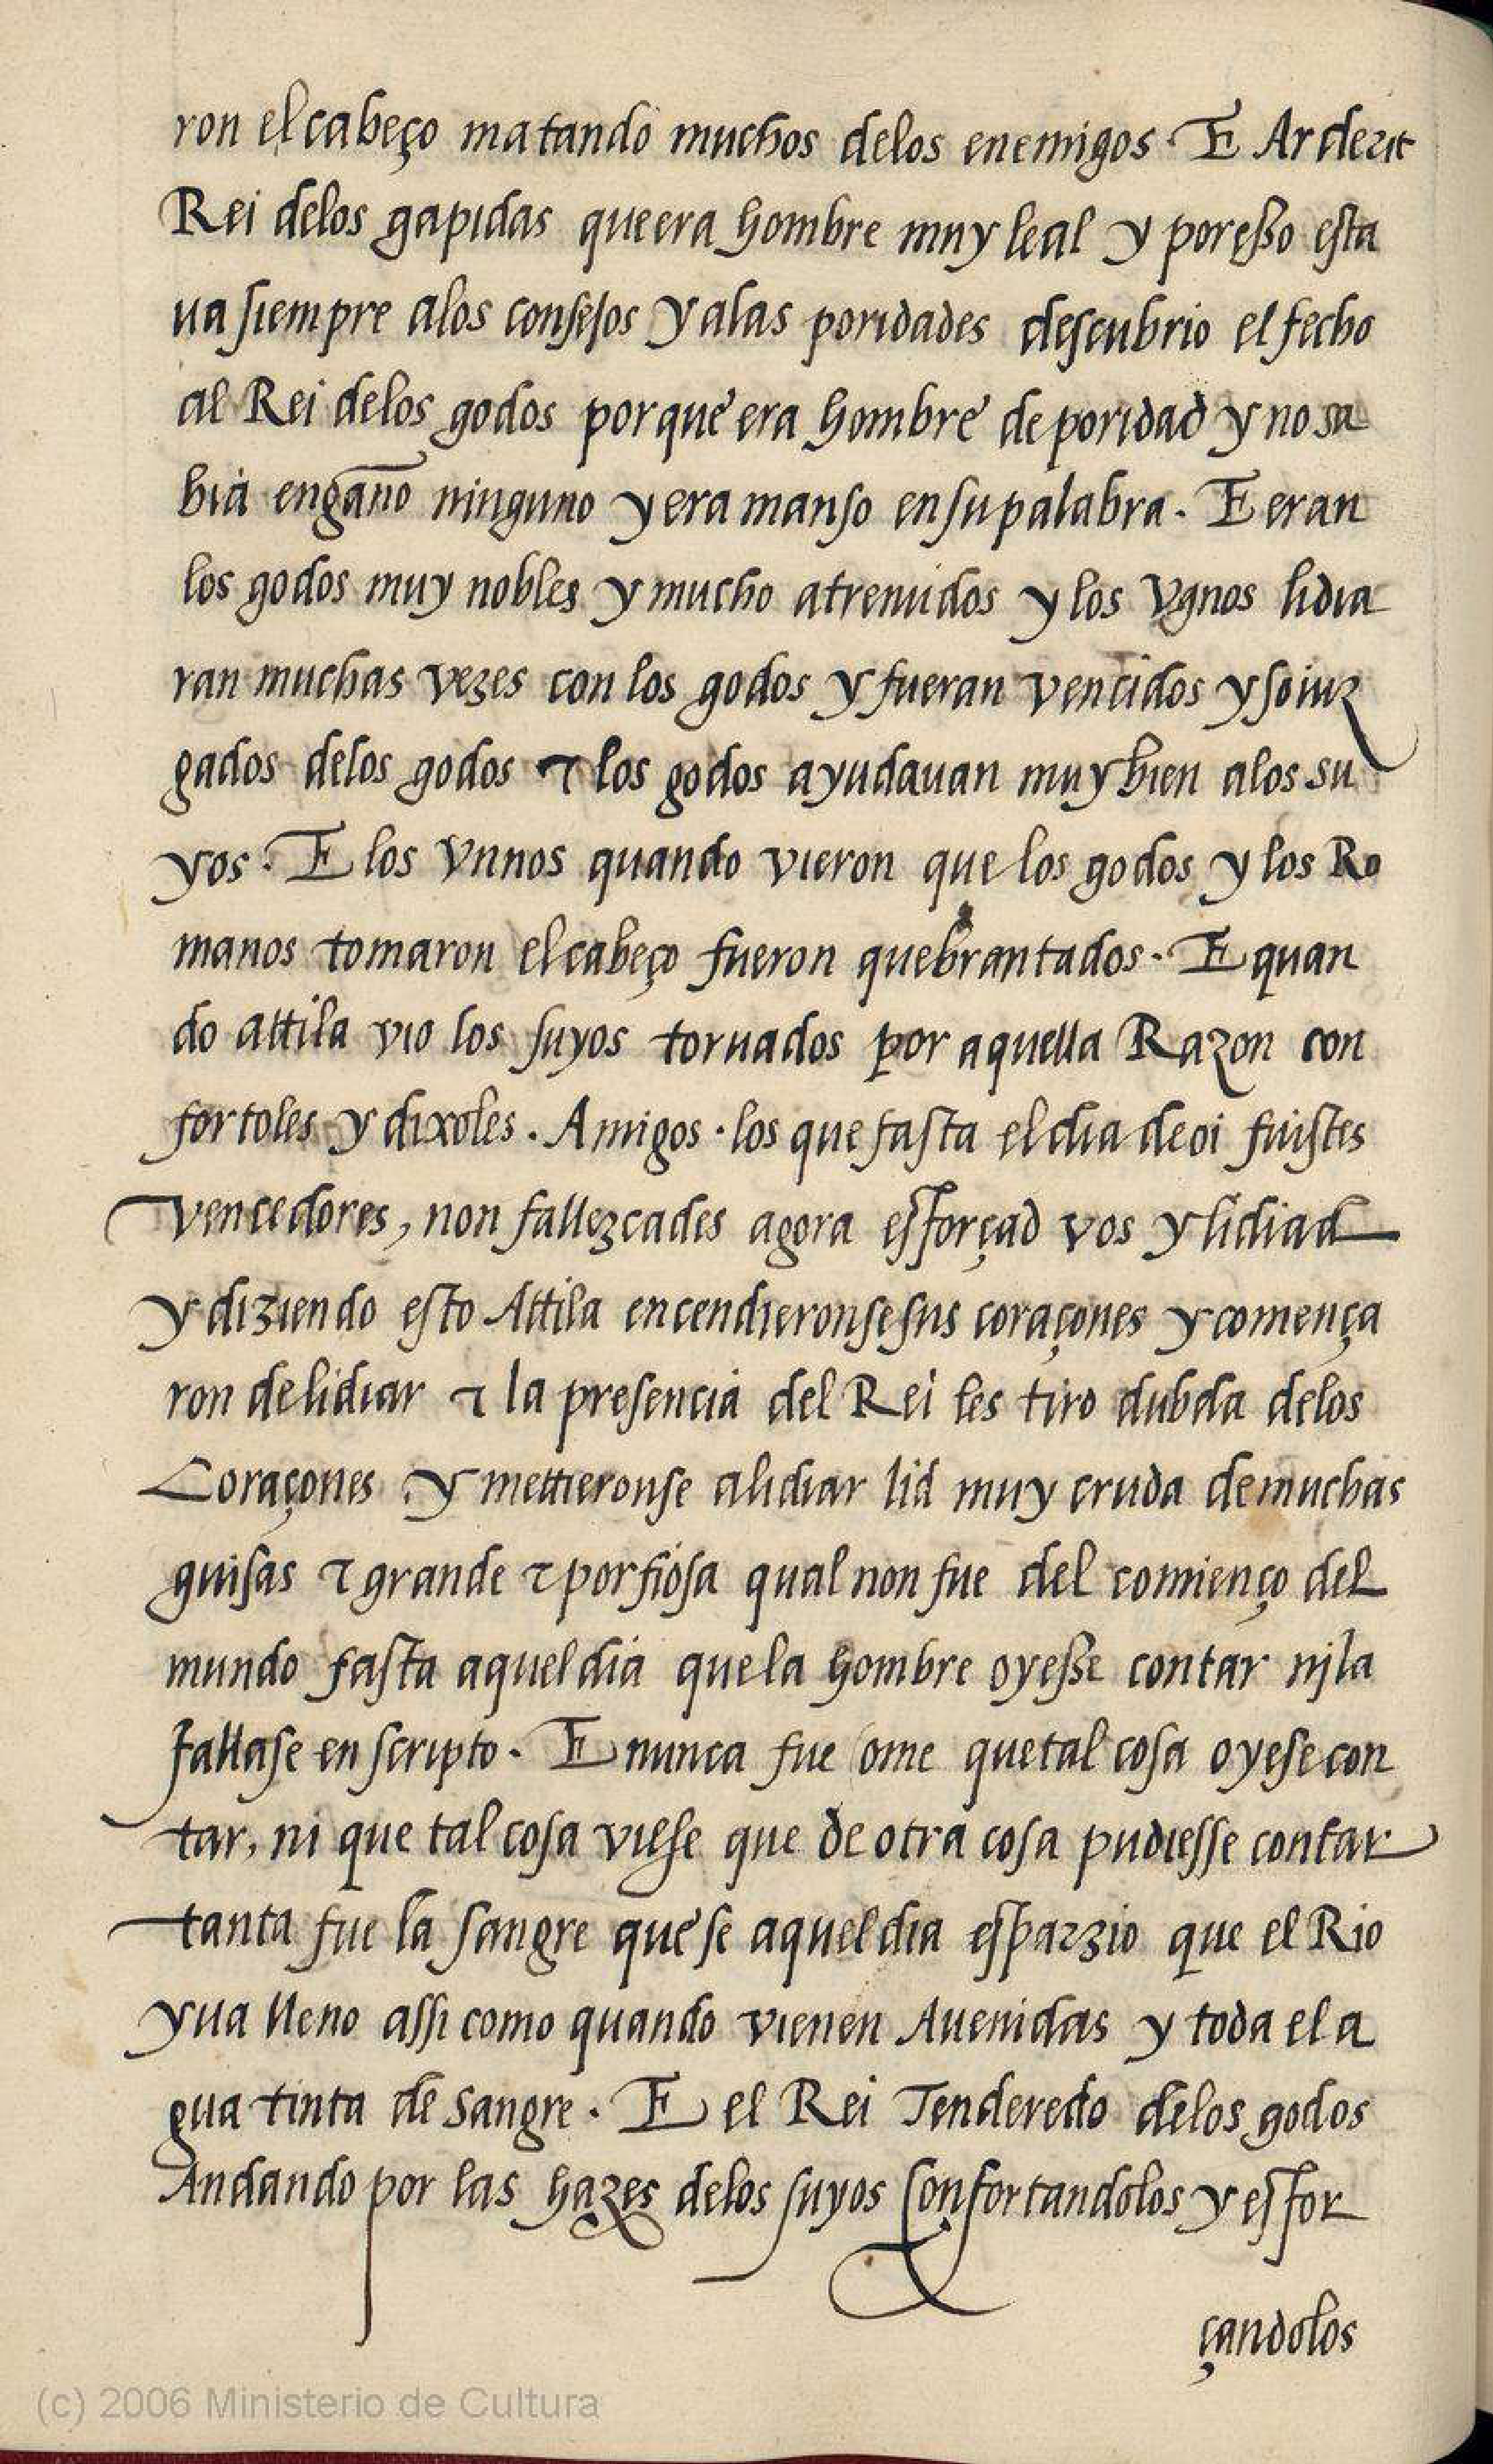 ron el cabeço matando muchos delos enemigos. E Arderic
Rei delos gapidas que era hombre muy leal y poresso esta
ua siempre alos consejos y alas poridades descubrio el fecho
al Rei delos godos porque era hombre de poridad y no sa
bia engaño ninguno y era manso en su palabra. E eran
los godos muy nobles y mucho atreuidos y los vgnos lidia
ran muchas vezes con los godos y fueran vencidos y soiuz
gados delos godos ⁊ los godos ayudauan muy bien alos su
yos. E los vnnos quando vieron que los godos y los Ro
manos tomaron el cabeço fueron quebrantados. E quan
do attila vio los suyos toruados por aquella Razon con
fortoles y dixoles. Amigos. los que fasta el dia de oi fuistes
vencedores, non fallezcades agora esforçad vos y lidiad
y diziendo esto Attila encendieronse sus coraçones y comença
ron de lidiar ⁊ la presencia del Rei les tiro dubda delos
Coraçones y mettieronse a lidiar lid muy cruda de muchas
guisas ⁊ grande ⁊ porfiosa qual non fue del comienço del
mundo fasta aquel dia que la hombre oyesse contar nj la
fallase en scripto. E nunca fue ome que tal cosa oyese con
tar, ni que tal cosa viese que de otra cosa pudiesse contar
tanta fue la sangre que se aquel dia esparzio que el Rio
yua lleno assi como quando vienen Auenidas y toda el a
gua tinta de sangre. E el Rei Tenderedo delos godos
Andando por las hazes delos suyos confortandolos y esfor
çandolos
(c) 2006 Ministerio de Cultura